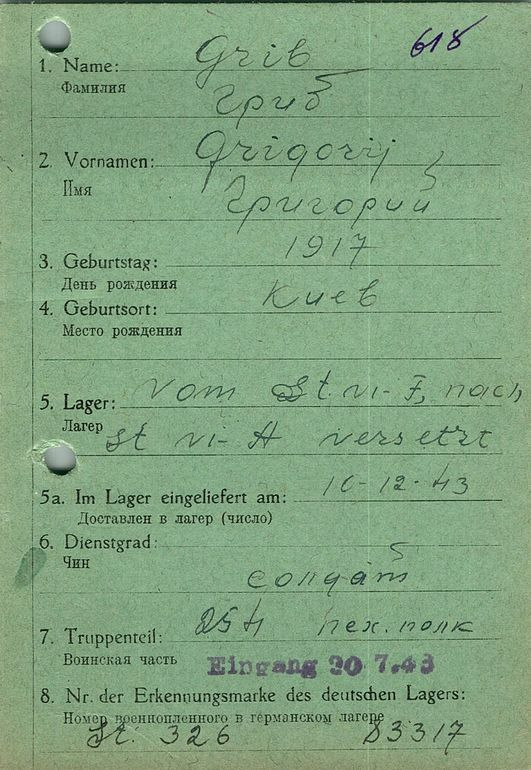 618
1. Name: Grib
Фамилия
Гриб
2. Vornamen: Grigorij
Имя
Григорий
1917
3. Geburtstag:
День рождения
Киев
4. Geburtsort:
Место рождения
5. Lager: vom St. VI-F, nach
Лагер St VI-A versetzt
5a. Im Lager eingeliefert am: 10-12-43
Доставлен в лагер (число)
6. Dienstgrad:
Чин
солдат
7. Truppenteil: 254 пех. полк
Воинская часть Eingang 20 7.43
8. Nr. der Erkennungsmarke des deutschen Lagers:
Номер военнопленного в германском лагере
St. 326 83317